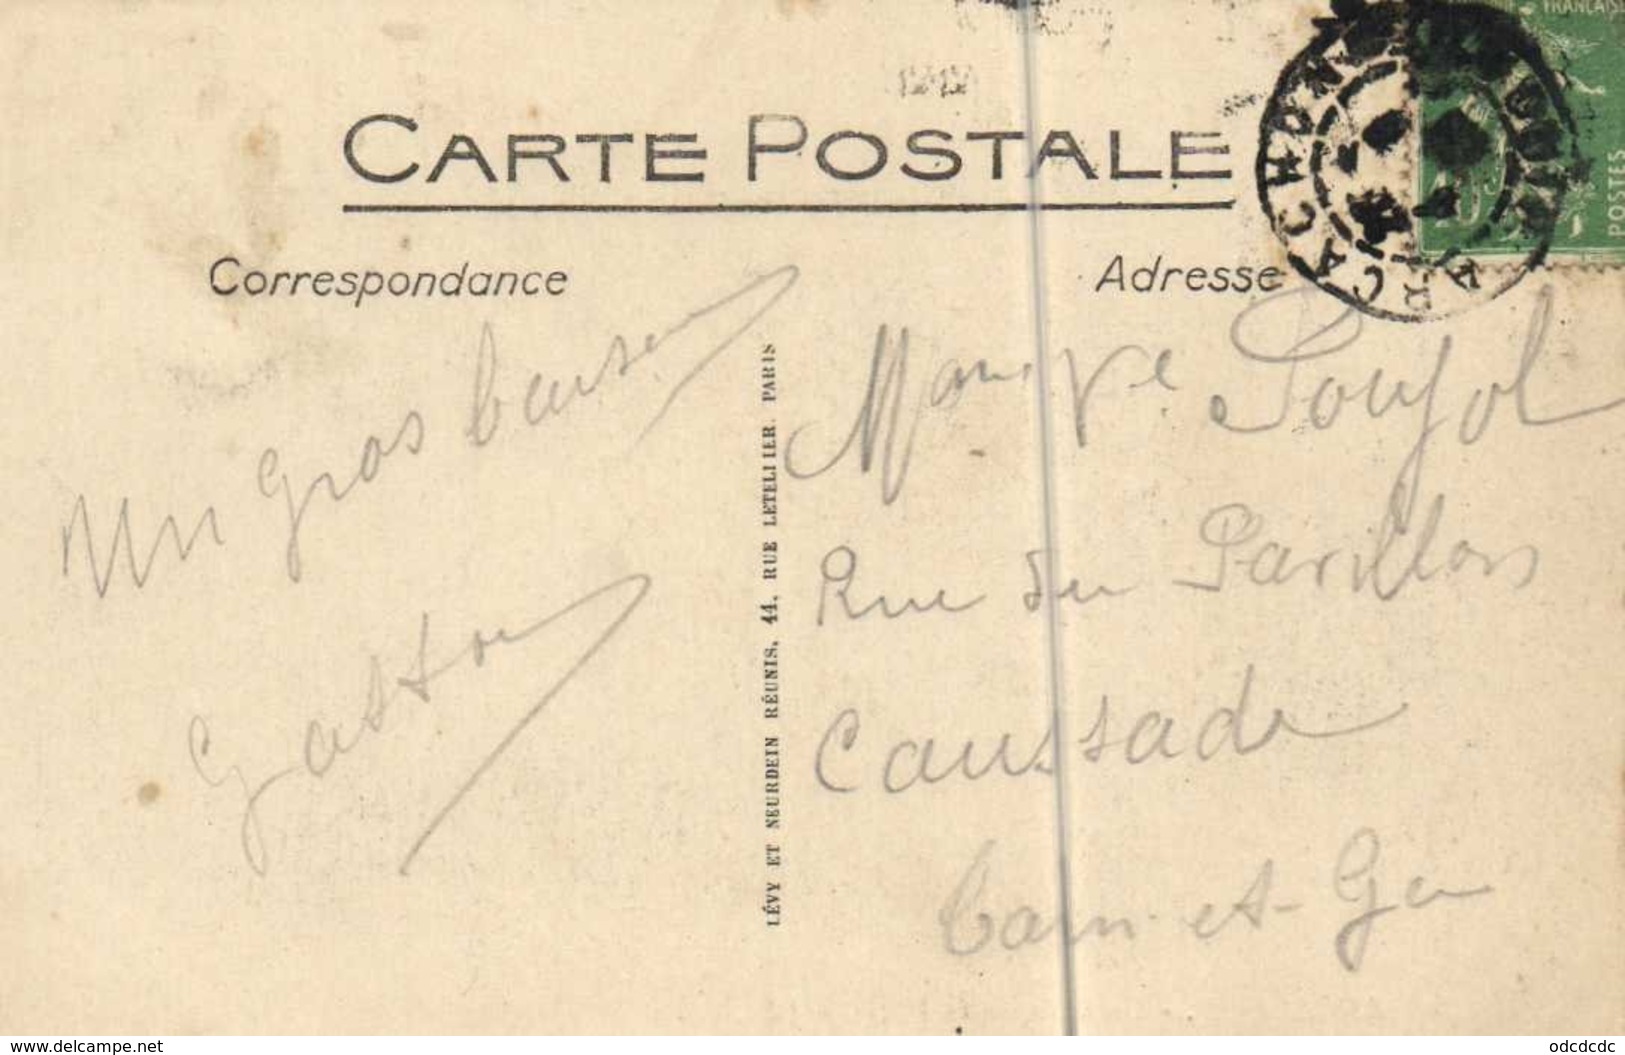 FRANÇAISE
POSTES
ARCACHON
CARTE POSTALE
Correspondance
Adresse
Un gros baiser
Gaston
LÉVY ET NEURDEIN RÉUNIS, 44, RUE LETELIER, PARIS
Mame Vve Poujol
Rue du Pavillon
Caussade
Tarn-et-Gne
www.delcampe.net
odcdcdc